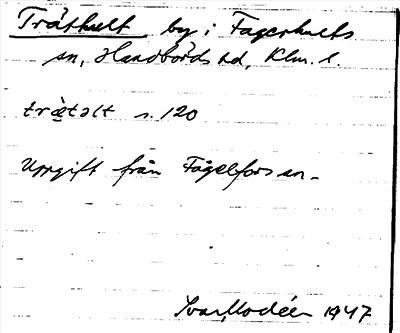 Träthult by i Fagerhults
sn, Handbörds hd, Klm. l.
trä̀tɔlt s. 120
Uppgift från Fågelfors sn.
Ivar Modéer 1947